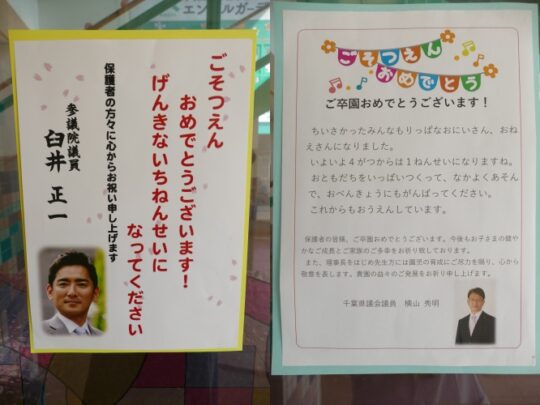 エンゼルガーデ
ごそつえん
おめでとうございます！
げんきないちねんせいに
なってください
保護者の方々に心からお祝い申し上げます
参議院議員
臼井 正一
ごそつえん
おめでとう
ご卒園おめでとうございます！
ちいさかったみんなもりっぱなおにいさん、おね
えさんになりました。
いよいよ４がつからは１ねんせいになりますね。
おともだちをいっぱいつくって、なかよくあそん
で、おべんきょうにもがんばってください。
これからもおうえんしています。
保護者の皆様、ご卒園おめでとうございます。今後もお子さまの健や
かなご成長とご家族のご多幸をお祈り致しております。
また、理事長をはじめ先生方には園児の育成にご尽力を賜り、心から
敬意を表します。貴園の益々のご発展をお祈り申し上げます。
千葉県議会議員 横山 秀明